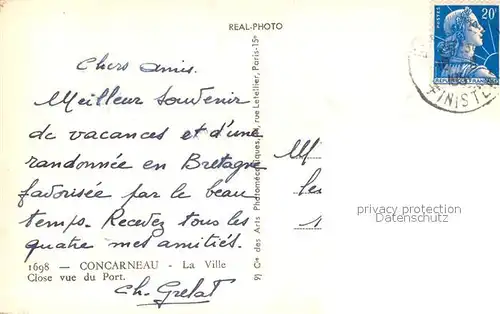 REAL-PHOTO
Chers amis.
Meilleur souvenir
de vacances et d'une
randonnée en Bretagne
favorisée par le beau
temps. Recevez tous les
quatre mes amitiés.
Ch. Grelat
1698 — CONCARNEAU - La Ville
Close vue du Port.
Cie des Arts Photomécaniques, rue Letellier, Paris-15e
POSTES
20F
REPUBLIQUE FRANÇAISE
FINISTE
M
les
privacy protection
Datenschutz